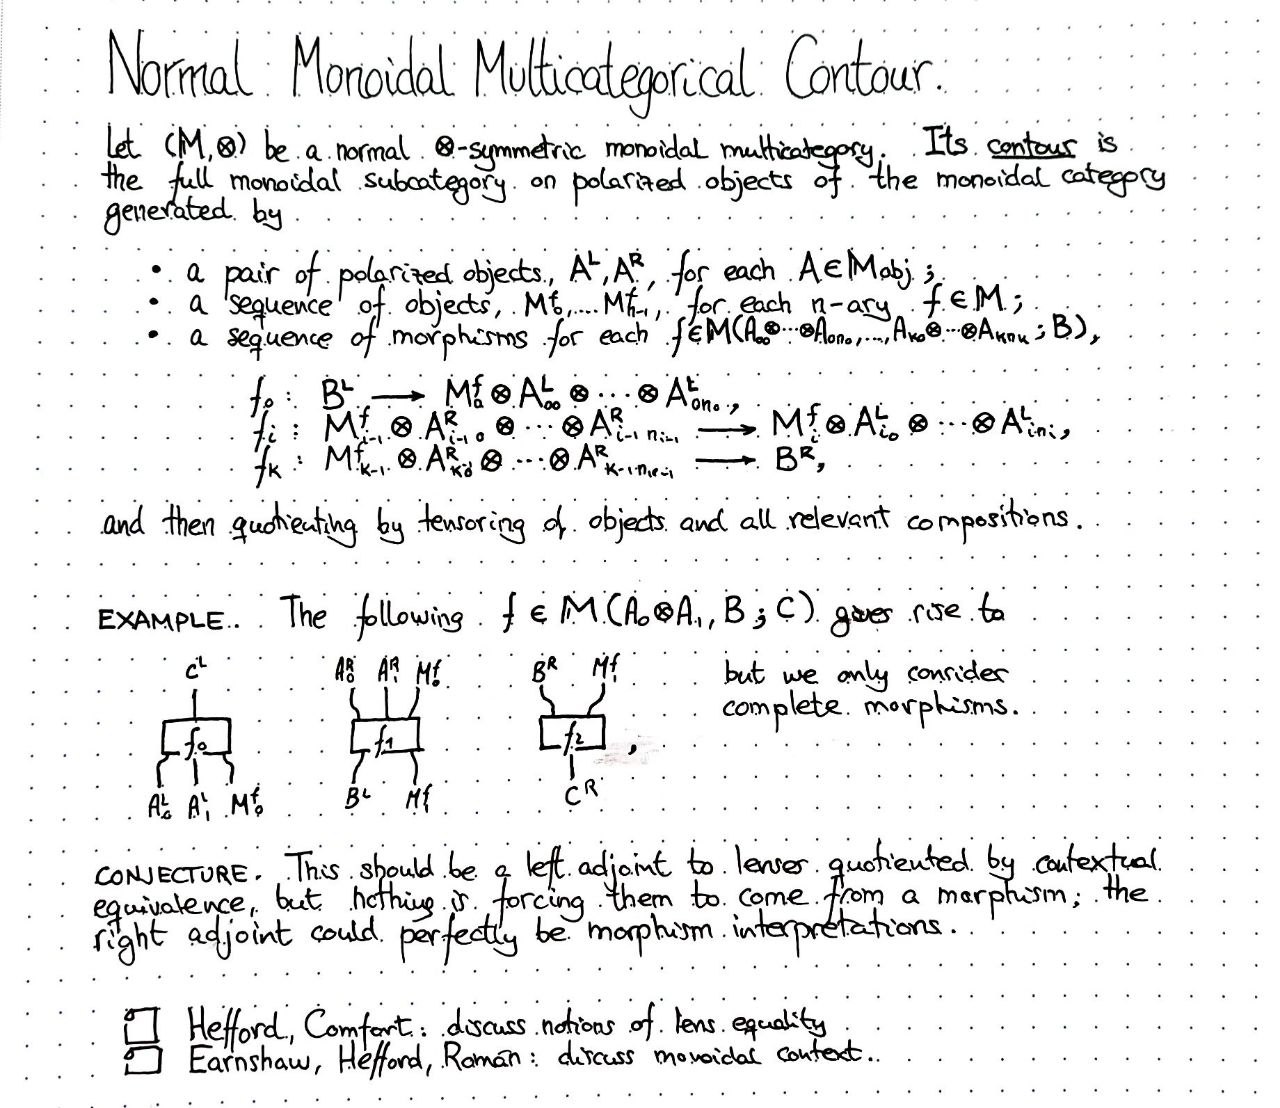 Normal Monoidal Multicategorical Contour.
Let (M,⊗) be a normal ⊗-symmetric monoidal multicategory. Its contour is
the full monoidal subcategory on polarized objects of the monoidal category
generated by
• a pair of polarized objects, Aᴸ, Aᴿ, for each A∈M_obj;
• a sequence of objects, M^f_0,....M^f_{n-1}, for each n-ary f∈M;
• a sequence of morphisms for each f∈M(A_{00}⊗···⊗A_{0n_0},...,A_{k0}⊗···⊗A_{kn_k};B),
f_0: B^L → M^f_0 ⊗ A^L_{00} ⊗ ··· ⊗ A^L_{0n_0},
f_i: M^f_{i-1} ⊗ A^R_{i-1 0} ⊗ ··· ⊗ A^R_{i-1 n_{i-1}} → M^f_i ⊗ A^L_{i0} ⊗ ··· ⊗ A^L_{in_i},
f_k: M^f_{k-1} ⊗ A^R_{k0} ⊗ ··· ⊗ A^R_{k-1 n_{k-1}} → B^R,
and then quotienting by tensoring of objects and all relevant compositions.
EXAMPLE. The following f ∈ M(A_0⊗A_1, B; C) gives rise to
C^L A^R_0 A^R_1 M^f_0 B^R M^f_1
but we only consider
complete morphisms.
f_0 f_1 f_2 ,
A^L_0 A^L_1 M^f_0 B^L M^f_1 C^R
CONJECTURE. This should be a left adjoint to lenses quotiented by contextual
equivalence, but nothing is forcing them to come from a morphism; the
right adjoint could perfectly be morphism interpretations.
Hefford, Comfort: discuss notions of lens equality
Earnshaw, Hefford, Román: discuss monoidal context.